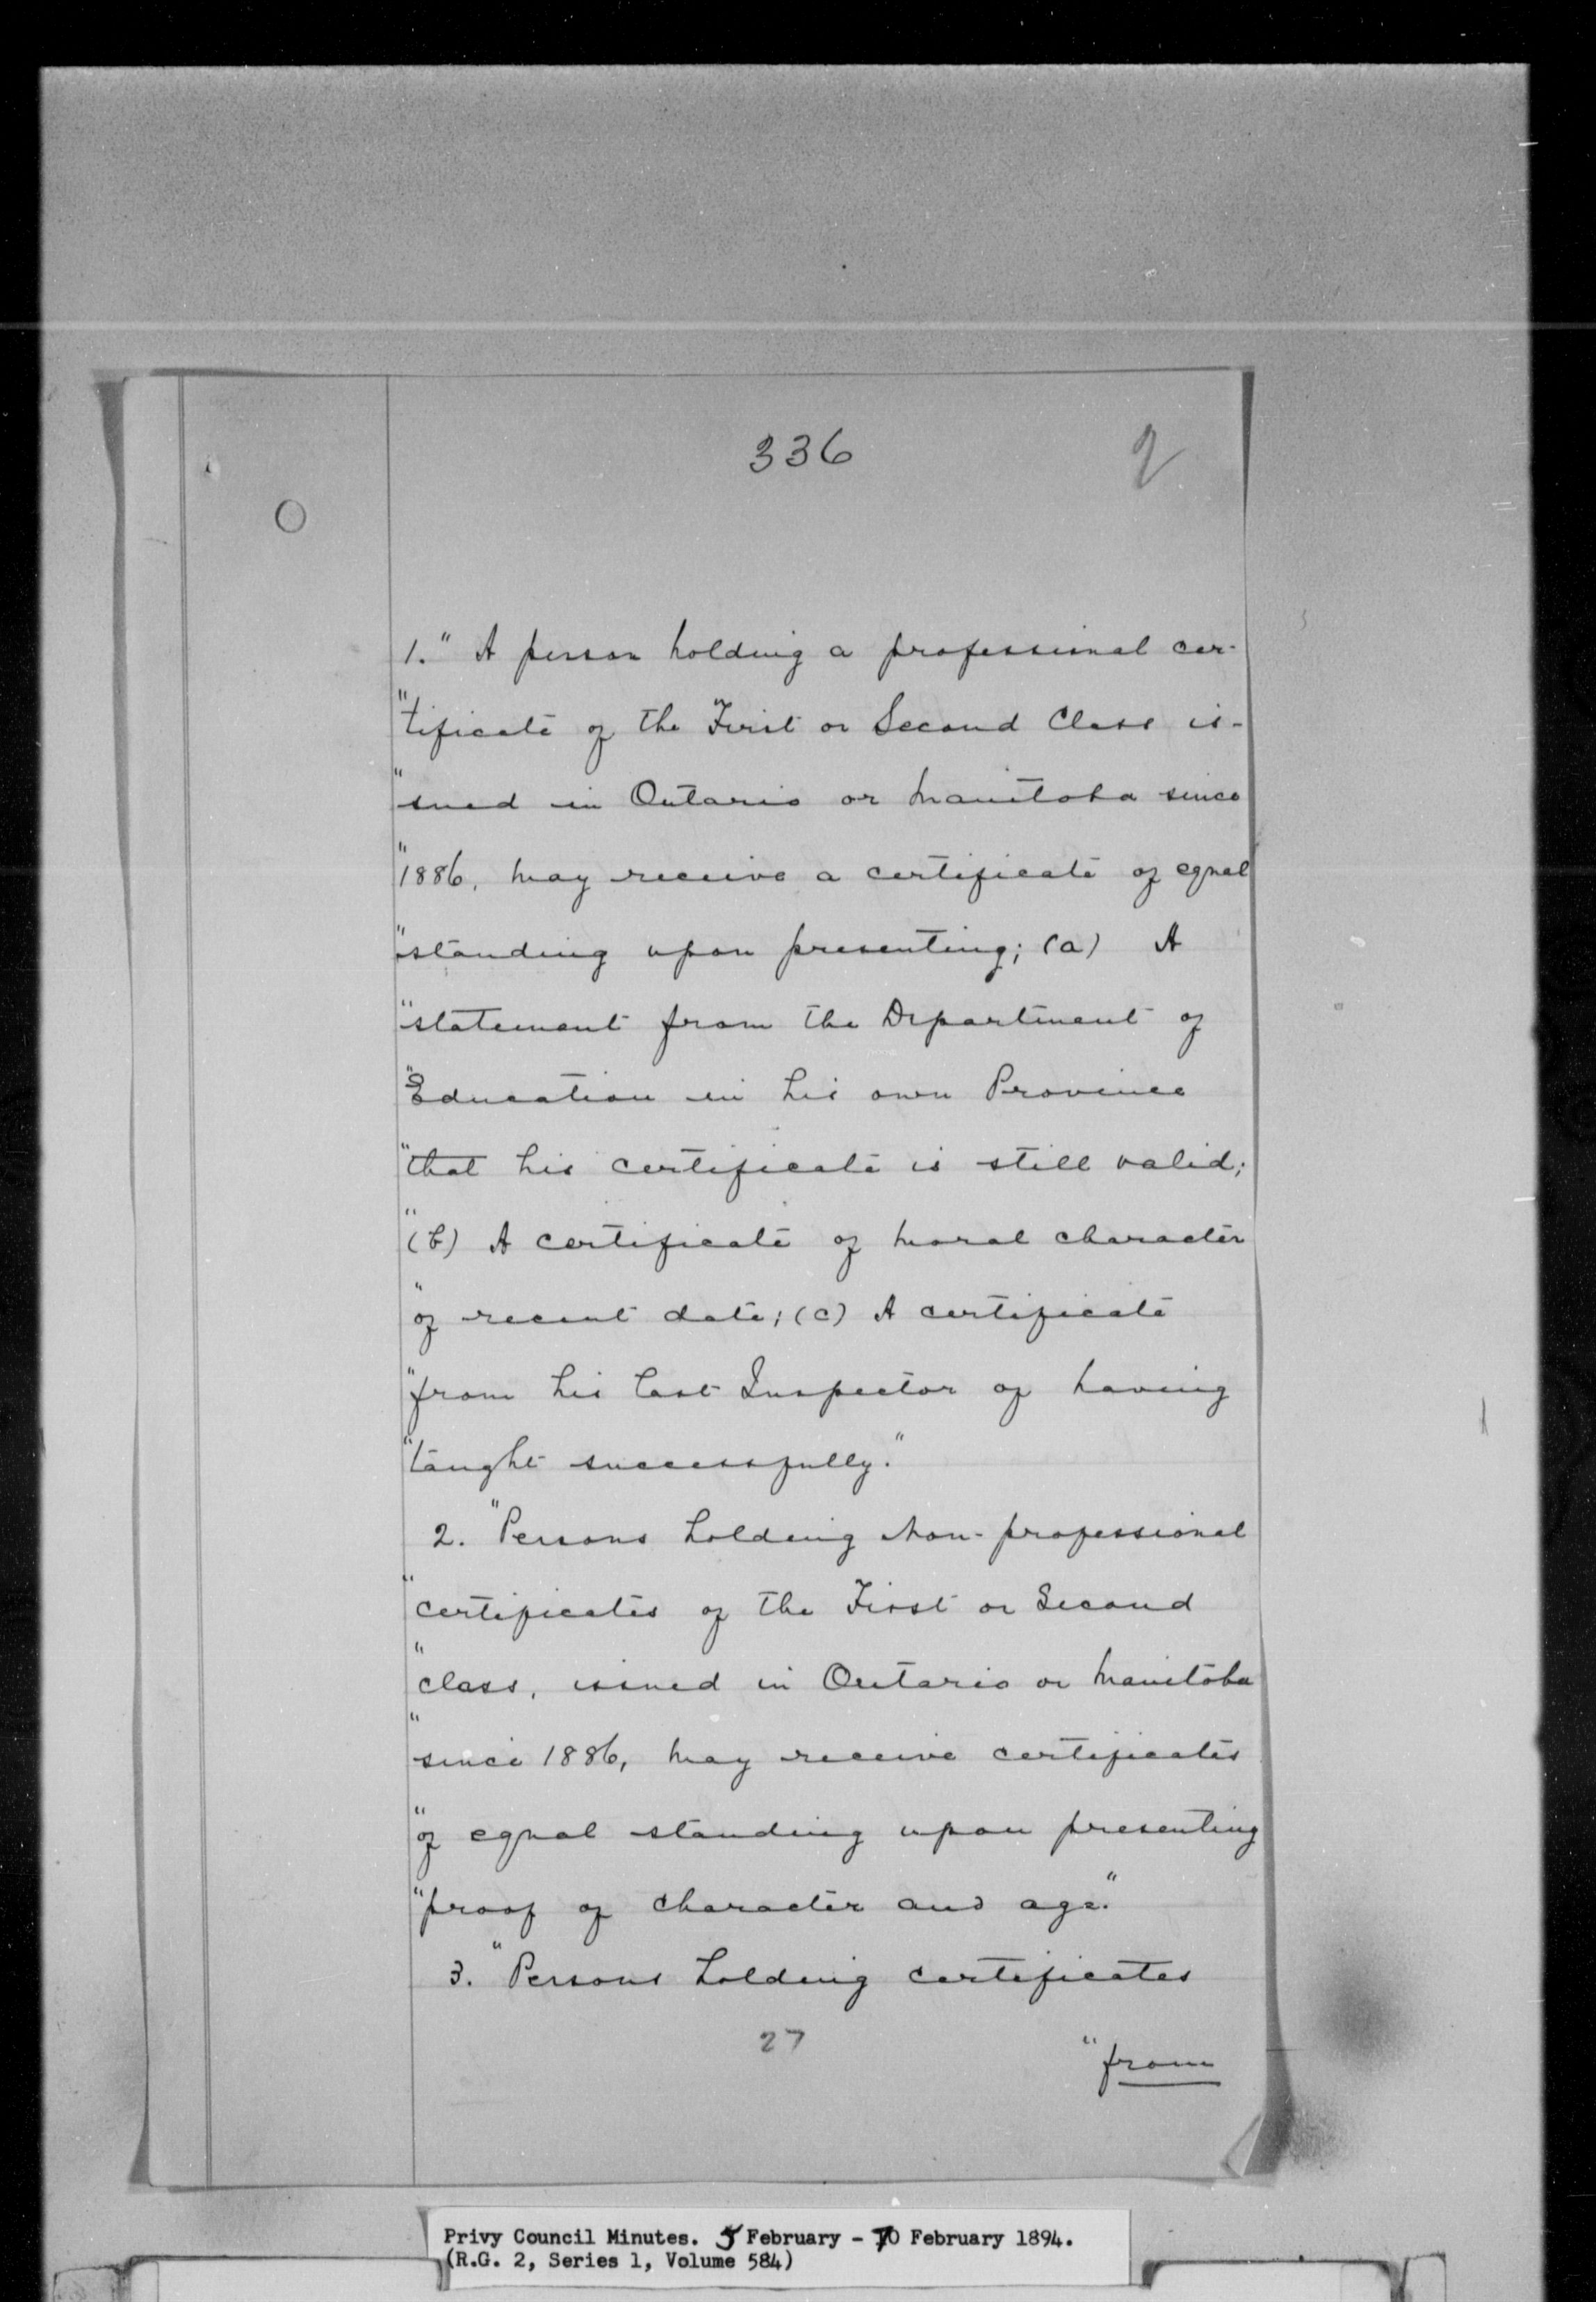 336
2
1. " A person holding a professional cer-
"tificate of the First or Second Class is-
"sued in Ontario or Manitoba since
"1886, may receive a certificate of equal
"standing upon presenting; (a) A
"statement from the Department of
"Education in his own Province
"that his certificate is still valid;
"(b) A certificate of moral character
"of recent date; (c) A certificate
"from his last Inspector of having
"taught successfully."
2. "Persons holding Non-professional
"certificates of the First or Second
"class, issued in Ontario or Manitoba
"since 1886, may receive certificates
"of equal standing upon presenting
"proof of character and age."
3. "Persons holding certificates
27
"from
Privy Council Minutes. 5 February - 10 February 1894.
(R.G. 2, Series 1, Volume 584)